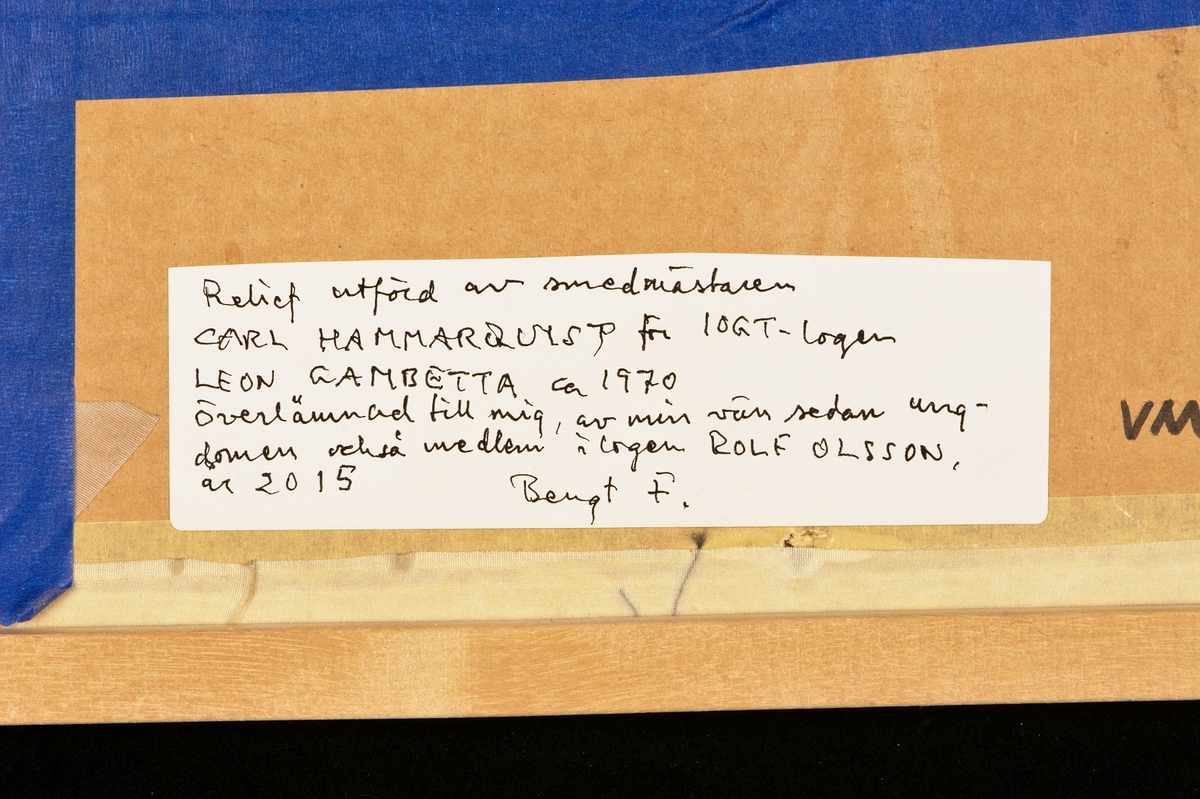 Relief utförd av smedmästaren
CARL HAMMARQUIST för IOGT-logen
LEON GAMBETTA ca 1970
överlämnad till mig, av min vän sedan ung-
domen också medlem i logen ROLF OLSSON,
år 2015 Bengt F.
VM